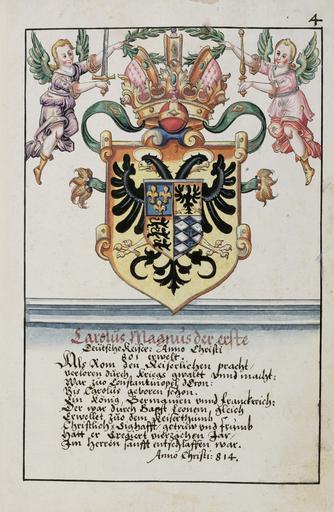 4
Carolus Magnus der erste
Deutsche Keiser: Anno Christi
801 erwelt.
Als Rom den Keiserlichen pracht
verloren durch kriegs gwalt vnnd macht:
War zuo Constantinopel d'Cron:
Bis Carolus geboren schon.
Ein König, Germanien vnnd Franckerich:
Der war durch Bapst Leonem, gleich
Erwellet zuo dem Keiserthumb
Christlich, Sighafft getruw vnd frumb
Hatt er Regiert vierzachen Jar
Im Herren sanfft entschlaffen war.
Anno Christi: 814.